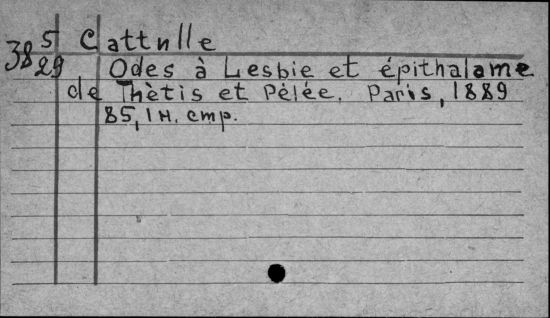 38 5/29 Cattulle
Odes à Lesbie et épithalame
de Thètis et Pèlée. Paris, 1889
85, 1 н. стр.